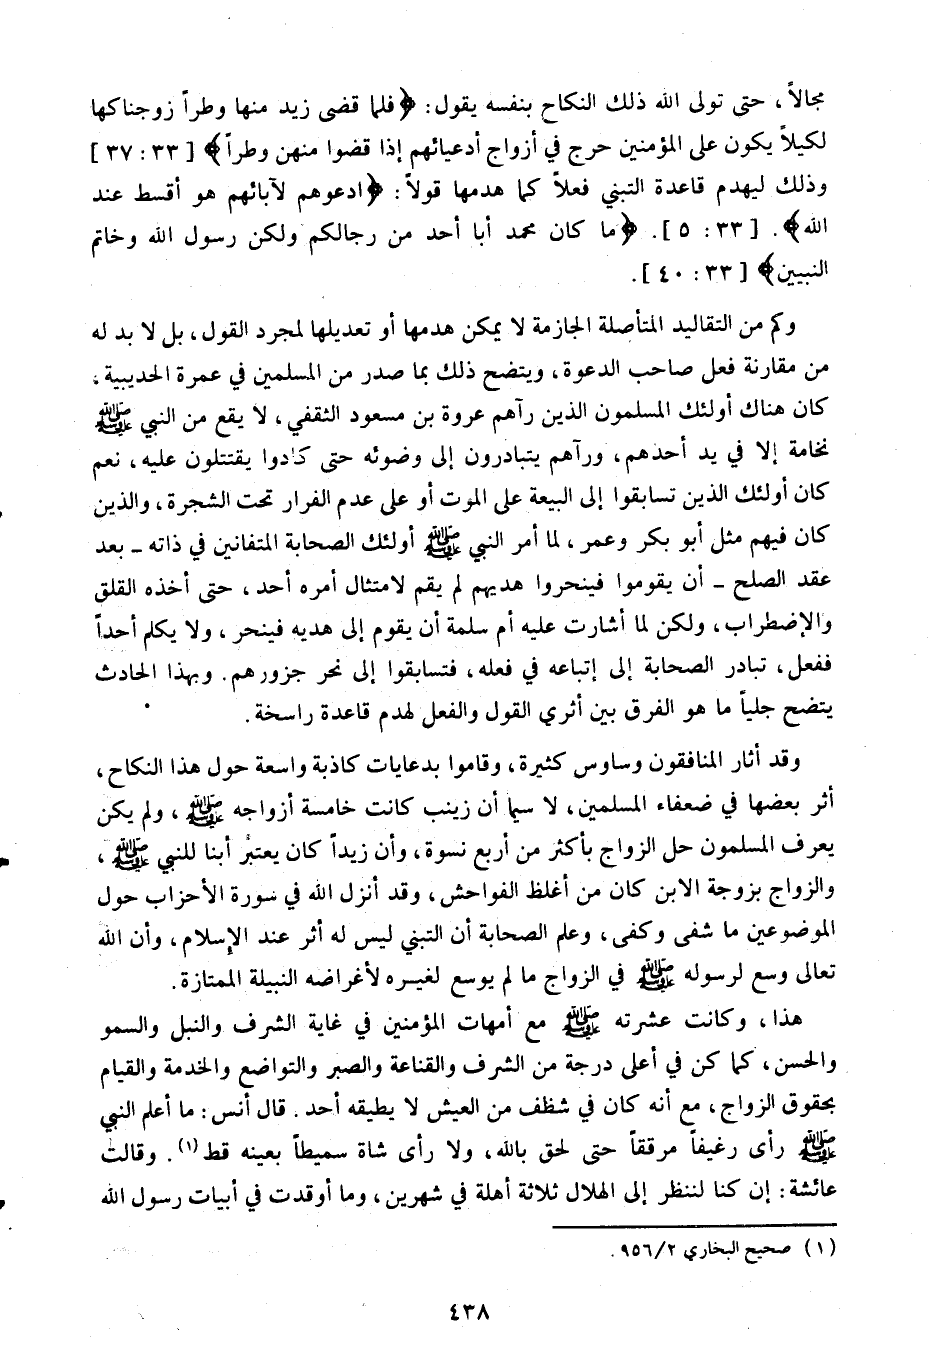 مجالاً، حتى تولى الله ذلك النكاح بنفسه يقول: ﴿فلما قضى زيد منها وطراً زوجناكها
لكيلاً يكون على المؤمنين حرج في أزواج أدعيائهم إذا قضوا منهن وطراً﴾ [٣٣: ٣٧]
وذلك ليهدم قاعدة التبني فعلاً كما هدمها قولاً: ﴿ادعوهم لآبائهم هو أقسط عند
الله﴾. [٣٣: ٥]. ﴿ما كان محمد أبا أحد من رجالكم ولكن رسول الله وخاتم
النبيين﴾ [٣٣: ٤٠].
وكم من التقاليد المتأصلة الجازمة لا يمكن هدمها أو تعديلها لمجرد القول، بل لا بد له
من مقارنة فعل صاحب الدعوة، ويتضح ذلك بما صدر من المسلمين في عمرة الحديبية،
كان هناك أولئك المسلمون الذين رآهم عروة بن مسعود الثقفي، لا يقع من النبي ﷺ
نخامة إلا في يد أحدهم، ورآهم يتبادرون إلى وضوئه حتى كادوا يقتتلون عليه، نعم
كان أولئك الذين تسابقوا إلى البيعة على الموت أو على عدم الفرار تحت الشجرة، والذين
كان فيهم مثل أبو بكر وعمر، لما أمر النبي ﷺ أولئك الصحابة المتفانين في ذاته ـ بعد
عقد الصلح ـ أن يقوموا فينحروا هديهم لم يقم لامتثال أمره أحد، حتى أخذه القلق
والإضطراب، ولكن لما أشارت عليه أم سلمة أن يقوم إلى هديه فينحر، ولا يكلم أحداً
ففعل، تبادر الصحابة إلى إتباعه في فعله، فتسابقوا إلى نحر جزورهم. وبهذا الحادث
يتضح جلياً ما هو الفرق بين أثري القول والفعل لهدم قاعدة راسخة.
وقد أثار المنافقون وساوس كثيرة، وقاموا بدعايات كاذبة واسعة حول هذا النكاح،
أثر بعضها في ضعفاء المسلمين، لا سيما أن زينب كانت خامسة أزواجه ﷺ، ولم يكن
يعرف المسلمون حل الزواج بأكثر من أربع نسوة، وأن زيداً كان يعتبر أبنا للنبي ﷺ،
والزواج بزوجة الابن كان من أغلظ الفواحش، وقد أنزل الله في سورة الأحزاب حول
الموضوعين ما شفى وكفى، وعلم الصحابة أن التبني ليس له أثر عند الإسلام، وأن الله
تعالى وسع لرسوله ﷺ في الزواج ما لم يوسع لغيره لأغراضه النبيلة الممتازة.
هذا، وكانت عشرته ﷺ مع أمهات المؤمنين في غاية الشرف والنبل والسمو
والحسن، كما كن في أعلى درجة من الشرف والقناعة والصبر والتواضع والخدمة والقيام
بحقوق الزواج، مع أنه كان في شظف من العيش لا يطيقه أحد. قال أنس: ما أعلم النبي
ﷺ رأى رغيفاً مرققاً حتى لحق بالله، ولا رأى شاة سميطاً بعينه قط(١). وقالت
عائشة: إن كنا لننظر إلى الهلال ثلاثة أهلة في شهرين، وما أوقدت في أبيات رسول الله
(١) صحيح البخاري ٢/ ٩٥٦.
٤٣٨